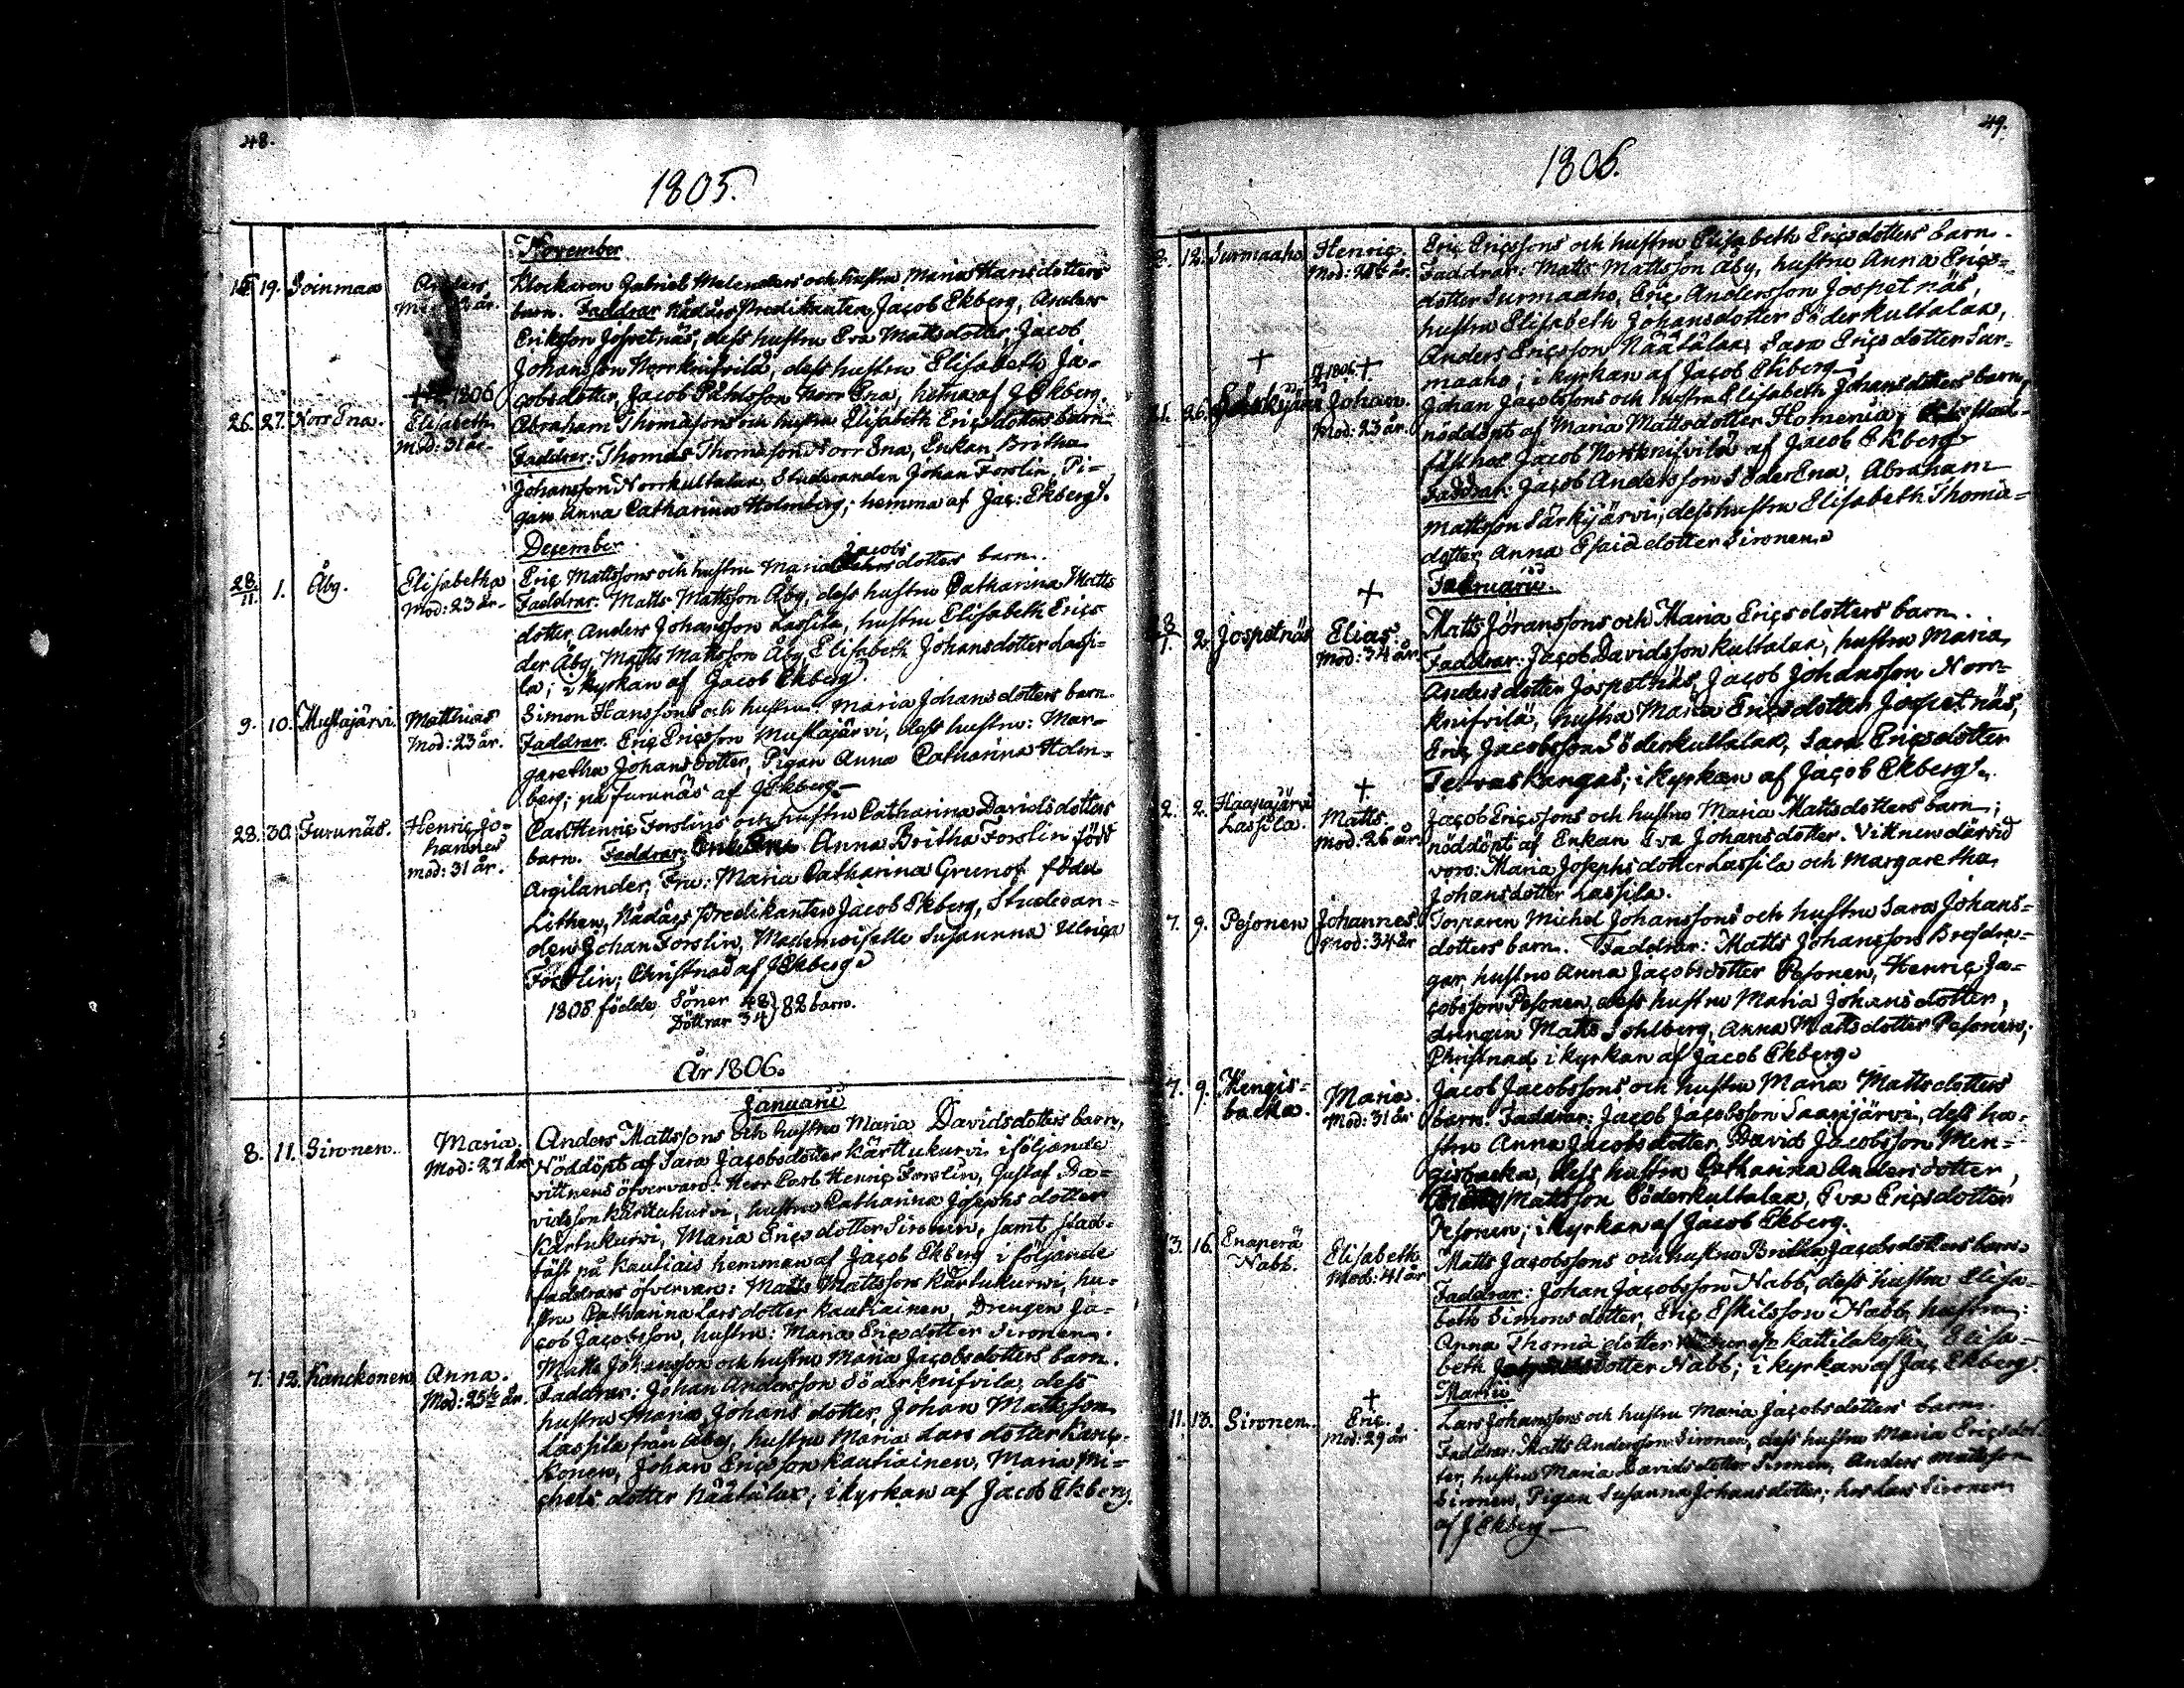 48.
1805.
November
15 19. Soinmaa Anders Klockaren Gabriel Melenders och hustru Maria Hansdotters
år. barn. Faddrar Nådårs Predikanten Jacob Ekberg, Anders
Eriksson Jospetnäs, dess hustru Eva Mattsdotter, Jacob
Johansson Norrknifvilä, dess hustru Elisabeth Ja-
1806 cobsdotter, Jacob Påhlsson Norr Ena, hema af J Ekberg.
26. 27. Norr Ena. Elisabeth Abraham Thomassons och hustru Elisabeth Ericsdotters barn
Mod: 31 år. Faddrar: Thomas Thomasson Norr Ena, Enkan Britha
Johansson Norrkultalax, Studeranden Johan Forslin, Pi-
gan Anna Catharina Holmberg; hemma af Jac: Ekberg.
December
Jacobs
28/11. 1. Åby. Elisabetha Eric Mattssons och hustru Maria dotters barn.
Mod: 23 år. Faddrar: Matts Mattsson Åby, dess hustru Catharina Matts
dotter, Anders Johansson Lassila, hustru Elisabeth Erics
der Åby, Matts Mattsson Åby, Elisabeth Johansdotter Lassi-
la; i kyrkan af Jacob Ekberg.
9. 10. Mustajärvi. Matthias Simon Hanssons och hustru: Maria Johansdotters barn.
Mod: 23 år. Faddrar. Eric Ericsson Mustajärvi, dess hustru: Mar-
garetha Johansdotter, Pigan Anna Catharina Holm-
berg; på Furunäs af J Ekberg.
28. 30. Furunäs. Henric Jo- Carl Henric Forslins och hustru Catharina Davidsdotters
hannes barn. Faddrar: Anna Britha Forslin född
mod: 31 år. Argilander, Fru: Maria Catharina Grunof född
Lithen, Nådårs Predikanten Jacob Ekberg, Studeran-
den Johan Forslin, Mademoiselle Susanna Ulrica
Forslin; Christnad af J Ekberg
1805 födde Söner 48 } 82 barn.
Döttrar 34
År 1806.
Januarii
8. 11. Sironen. Maria. Anders Mattssons och hustru Maria Davidsdotters barn,
Mod: 27 år Nöddöpt af Sara Jacobsdotter Kärttukurvi i följande
vittnens öfvervaro: Herr Carl Henric Forslin, Gustaf Da-
vidsson Kärttukurvi, hustru Catharina Josephsdotter
Kärtukurvi, Maria Ericsdotter Sironen, samt stad-
fäst på Kautiais hemman af Jacob Ekberg i följande
faddrars öfvervaro: Matts Mattsson Kärtukurvi, hu-
stru Catharina Larsdotter Kautiainen, Drengen Ja-
cob Jacobsson, hustru: Maria Ericsdotter Sironen.
7. 12. Kanckonen Anna. Matts Johansson och hustru Maria Jacobsdotters barn.
Mod: 25½ år. Faddrar: Johan Andersson Söderknifvila, dess
hustru Maria Johansdotter, Johan Mattsson
Lassila från Åby, hustru Maria Larsdotter Kanc-
konen, Johan Ericsson Kautiainen, Maria Mi-
chels dotter Näätälax; i kyrkan af Jacob Ekberg.
49.
1806.
12. Surmaaho Henric. Eric Ericssons och hustru Elisabeth Ericsdotters barn.
Mod: 28½ år. Faddrar: Matts Mattsson Åby, hustru Anna Erics-
dotter Surmaaho, Eric Andersson Jospetnäs,
hustru Elisabeth Johansdotter Söderkultalax,
Anders Ericsson Näätälax, Sara Ericsdotter Sur-
maaho; i kyrkan af Jacob Ekberg
21. 26. Särkijärvi Johan. Johan Jacobssons och hustru Elisabeth Johansdotters barn,
Mod: 23 år. nöddöpt af Maria Mattsdotter Homenia, stad-
fäst hos Jacob Norrknifvila af Jacob Ekberg
Faddrar: Jacob Andersson Söder Ena, Abraham
Mattsson Särkijärvi, dess hustru Elisabeth Thomæ-
dotter, Anna Esaiædotter Sironen.
Februarii.
28/1. 2. Jospetnäs Elias. Matts Göranssons och Maria Ericsdotters barn.
Mod: 34 år. Faddrar: Jacob Davidsson Kultalax, hustru Maria
Andersdotter Jospetnäs, Jacob Johansson Norr-
knifvilä, hustru Maria Ericsdotter Jospetnäs,
Eric Jacobsson Söderkultalax, Sara Ericsdotter
Tervaskangas; i kyrkan af Jacob Ekberg.
2. 2. Haapajärvi Matts. Jacob Ericssons och hustru Maria Mattsdotters barn;
Lassila. Mod: 26 år. nöddöpt af Enkan Eva Johansdotter. Vittnen därvid
voro: Maria Josephsdotter Lassila och Margaretha
Johansdotter Lassila.
7. 9. Pesonen Johannes. Torparen Michel Johanssons och hustru Sara Johans-
Mod: 34 år dotters barn. Faddrar: Matts Johansson Bresdra-
gar, hustru Anna Jacobsdotter Pesonen, Henric Ja-
cobsson Pesonen, dess hustru Maria Johansdotter,
drengen Matts Sohlberg, Anna Mattsdotter Pesonen;
Christnad i kyrkan af Jacob Ekberg
7. 9. Mengis- Maria. Jacob Jacobssons och hustru Maria Mattsdotters
backa. Mod: 31 år barn. Faddrar: Jacob Jacobsson Saarijärvi, dess hu-
stru Anna Jacobsdotter, David Jacobsson Men-
gisbacka, dess hustru Catharina Andersdotter,
Mattsson Söderkultalax, Eva Ericsdotter
Pesonen; i kyrkan af Jacob Ekberg.
13. 16. Enaperä Elisabeth Matts Jacobssons och hustru Britha Jacobsdotters barn.
Nabb. Mod: 41 år Faddrar: Johan Jacobsson Nabb, dess hustru Elisa-
beth Simonsdotter, Eric Eskilsson Nabb, hustru:
Anna Thomædotter Kattilakoski, Elisa-
beth dotter Nabb; i kyrkan af Jac Ekberg.
Martii
11. 13. Sironen. Eric. Lars Johanssons och hustru Maria Jacobsdotters barn.
Mod: 29 år Faddrar: Matts Andersson Sironen, dess hustru Maria Ericsdot-
ter, hustru Maria Davidsdotter Sironen, Anders Mattsson
Sironen, Pigan Susanna Johansdotter; hos Lars Sironen
af J Ekberg